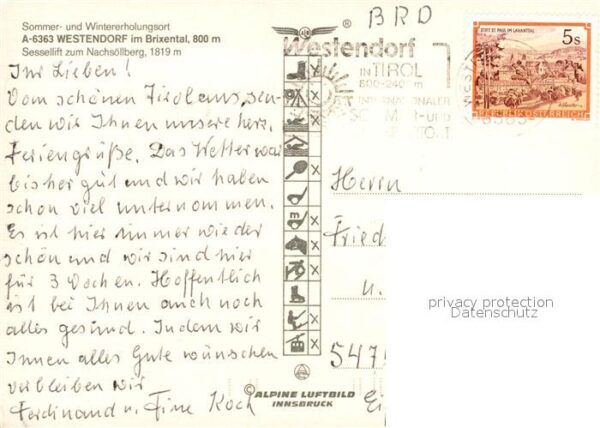 Sommer- und Wintererholungsort
A-6363 WESTENDORF im Brixental, 800 m
Sessellift zum Nachsöllberg, 1819 m
Ihr Lieben!
Vom schönen Tirol aus, sen-
den wir Ihnen unsere herz.
Feriengrüße. Das Wetter war
bisher gut und wir haben
schon viel unternommen.
Es ist hier immer wieder
schön und wir sind hier
für 3 Wochen. Hoffentlich
ist bei Ihnen auch noch
alles gesund. Indem wir
Ihnen alles Gute wünschen
verbleiben wir
Ferdinand u. Fine Koch
®
BRD
Westendorf
IN TIROL
800-2400 m
INTERNATIONALER
STIFT ST. PAUL IM LAVANTTAL
5s
REPUBLIK ÖSTERREICH
Herrn
Fried
u.
547
Ei
privacy protection
Datenschutz
© ALPINE LUFTBILD
INNSBRUCK